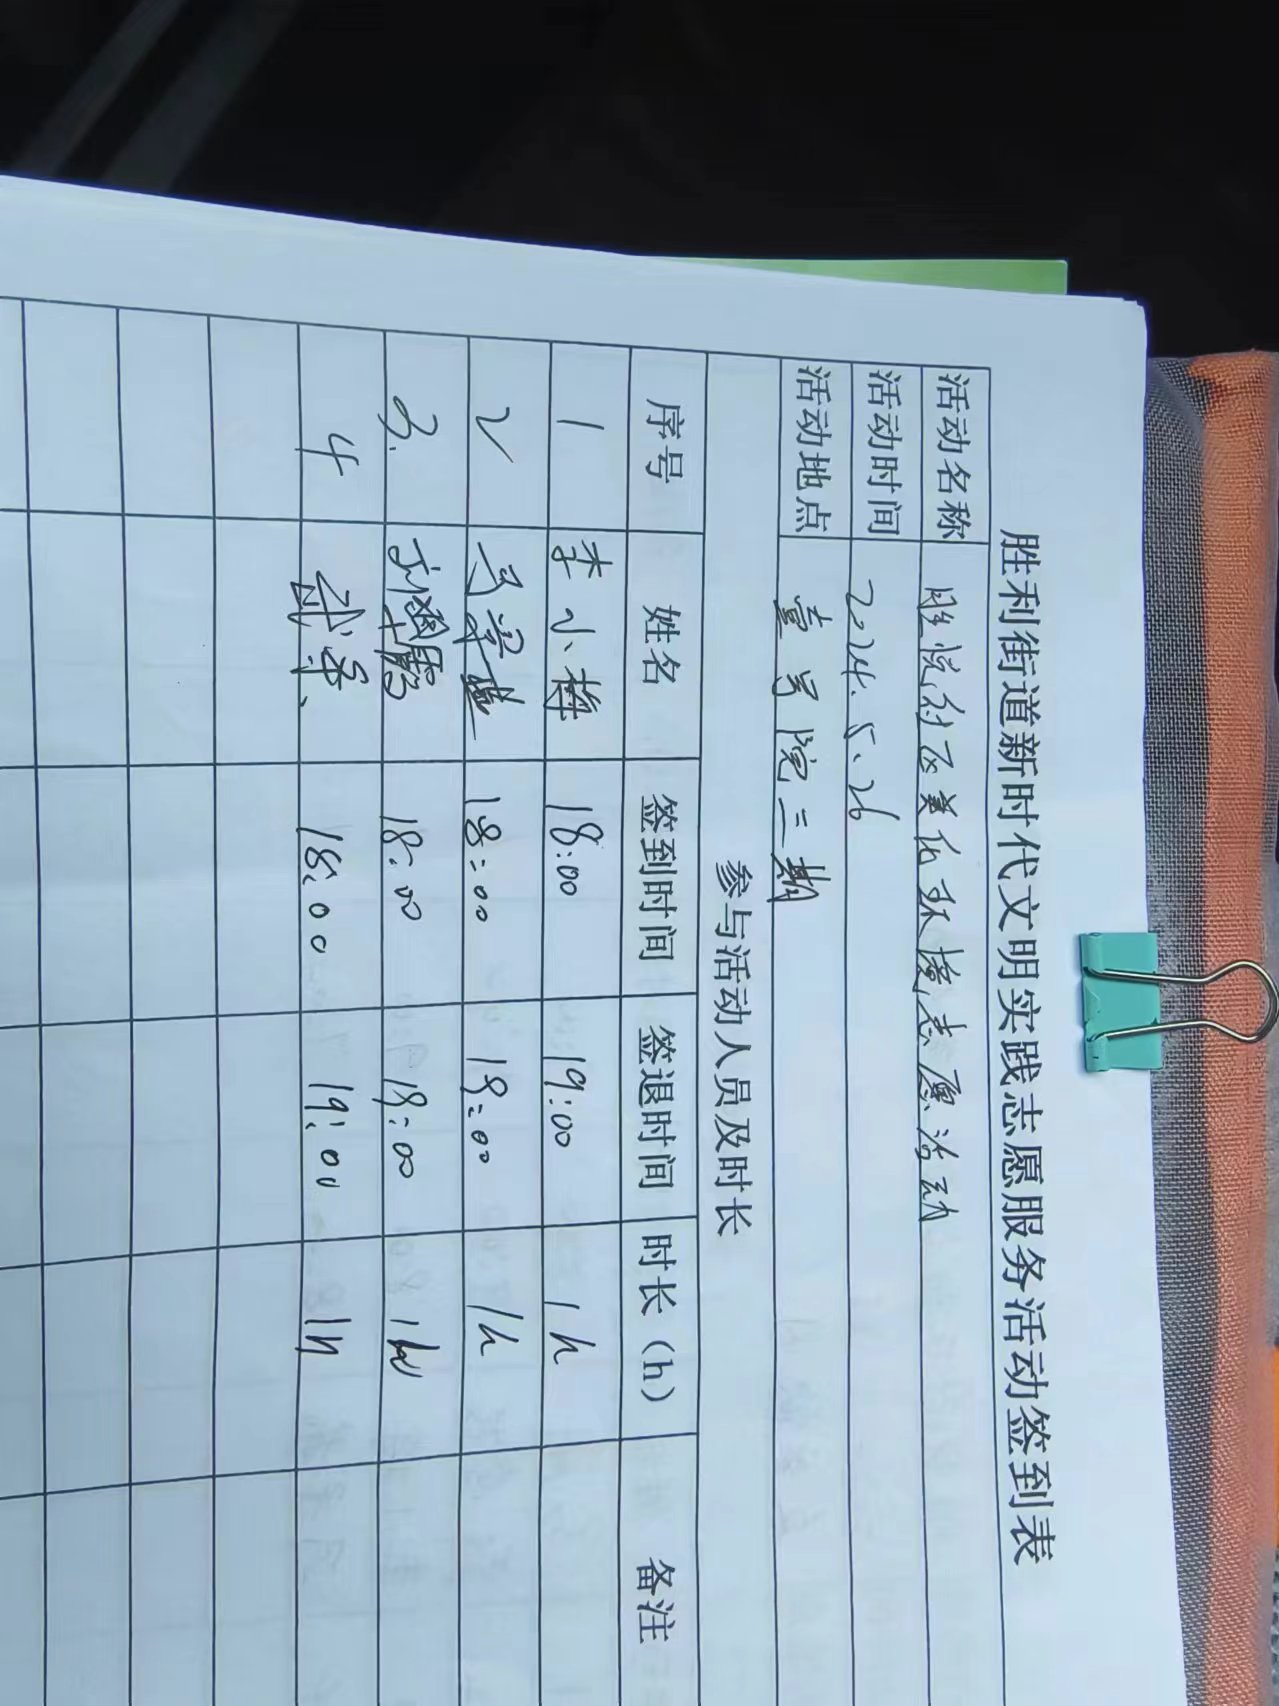 胜利街道新时代文明实践志愿服务活动签到表
活动名称 胜悦社区美化环境志愿活动
活动时间 2024.5.26
活动地点 壹号院三期
参与活动人员及时长
序号 姓名 签到时间 签退时间 时长（h） 备注
1 李小梅 18:00 19:00 1h
2 18:00 19:00 1h
3. 18:00 19:00 1h
4 18:00 19:00 1h